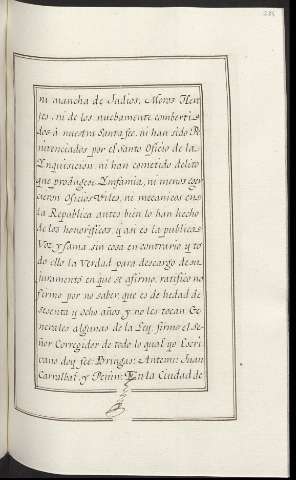 ni mancha de Judios, Moros Here
jes, ni de los nuebamente combertì
dos à nuestra Santa feè, ni han sido Pe
nitenciados por el Santo Oficio de la
Ynquisicion ni han cometido delito
que produgese Ynfamia, ni menos eger
cieron Oficios Viles, ni mecanicos en
la Republica antes bien lo han hecho
de los honorificos, y asi es la publica
Voz, y fama sin cosa en contrario, y to
do ello la Verdad para descargo de su
juramento en que se afirmo, ratificò no
firmo por no saber, que es de hedad de
sesenta y ocho años y no les tocan Ge
nerales algunas de la Ley, firmo el Se
ñor Corregidor de todo lo qual yo Escri
vano doy feè: Bringas: Antemi: Juan
Carvalbal y Penin: En la Ciudad de